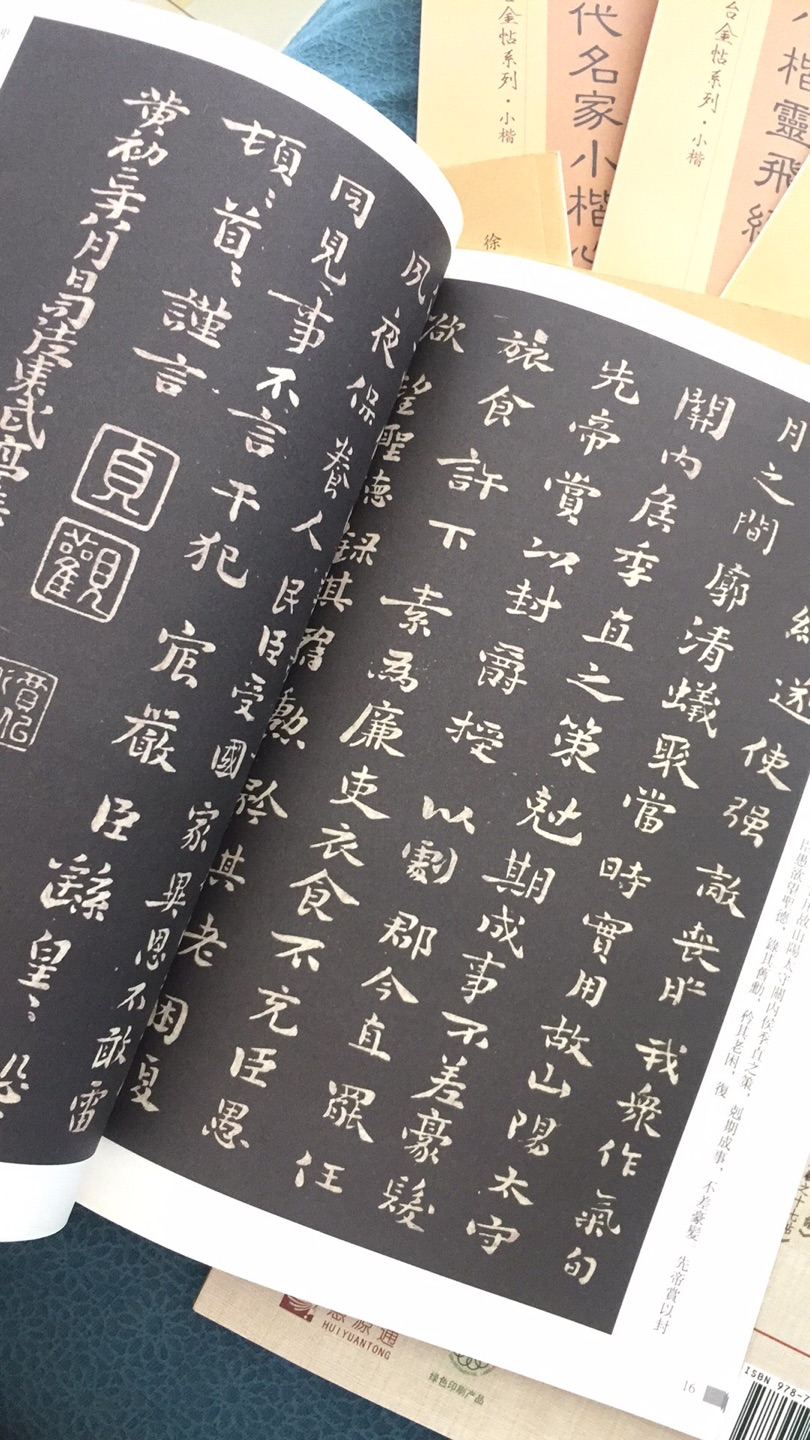 夙夜保養人民臣受國家異恩不敢雷
同見事不言干犯宸嚴臣繇皇〻恐〻
頓〻首〻謹言
黃初二年八月日司徒東武亭
貞觀
遂使强敵喪膽我衆作氣旬
月之間廓清蟻聚當時實用故山陽太守
關內侯季直之策尅期成事不差豪髮
先帝賞以封爵授以劇郡今直罷任
旅食許下素為廉吏衣食不充臣愚
欲望聖德録其舊勳矜其老困復
故山陽太守關内侯季直之策，尅期成事，不差豪髮　先帝賞以封
臣愚欲望聖德，錄其舊勳，矜其老困，復
16
台金帖系列·小楷
代名家小楷心
台金帖系列·小楷
小楷靈飛經
徐
慧源通
HUIYUANTONG
绿色印刷产品
ISBN 978-7